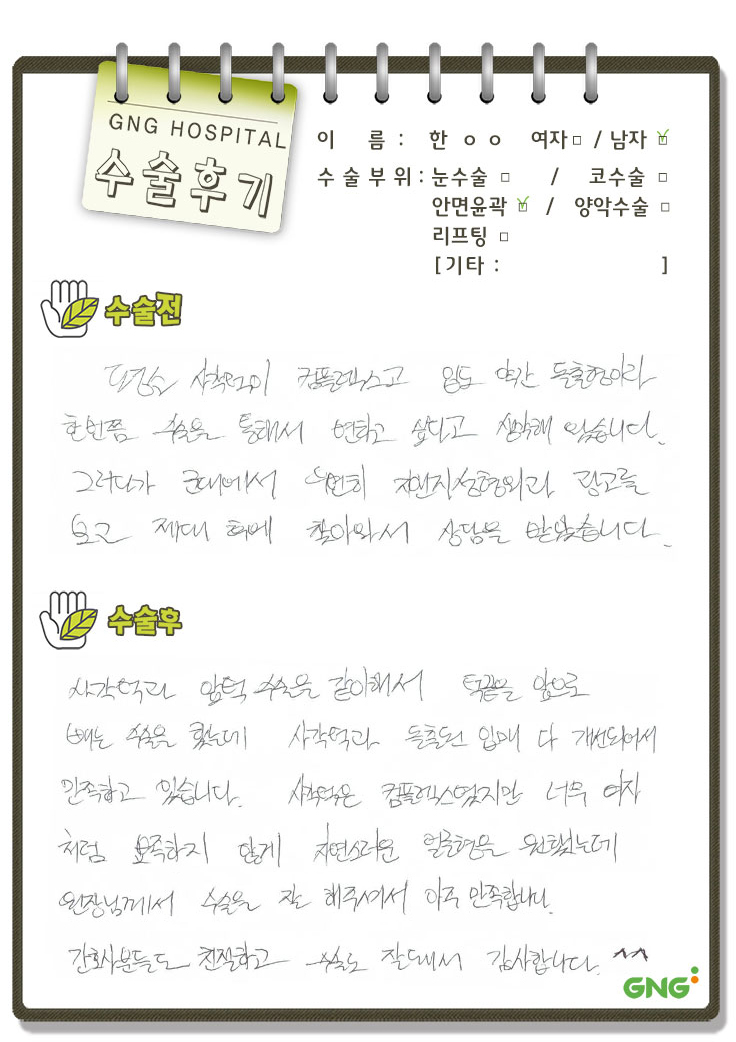 GNG HOSPITAL
수술후기
이 름 : 한 ㅇ ㅇ 여자□ / 남자 ☑
수술부위 : 눈수술 □ / 코수술 □
안면윤곽 ☑ / 양악수술 □
리프팅 □
[기타 : ]
수술전
사각턱이 컴플렉스고 입도 약간 돌출형이라
한번쯤 수술을 통해서 변하고 싶다고 생각해 왔습니다.
그러다가 군대에서 우연히 지앤지성형외과 광고를
보고 제대 후에 찾아와서 상담을 받았습니다.
수술후
사각턱과 앞턱 수술을 같이해서 턱끝을 앞으로
빼는 수술을 했는데 사각턱과 돌출된 입매 다 개선되어서
만족하고 있습니다. 사각턱은 컴플렉스였지만 너무 여자
처럼 뾰족하지 않게 자연스러운 얼굴형을 원했는데
원장님께서 수술을 잘 해주셔서 아주 만족합니다.
간호사분들도 친절하고 수술도 잘돼서 감사합니다. ^^
GNG